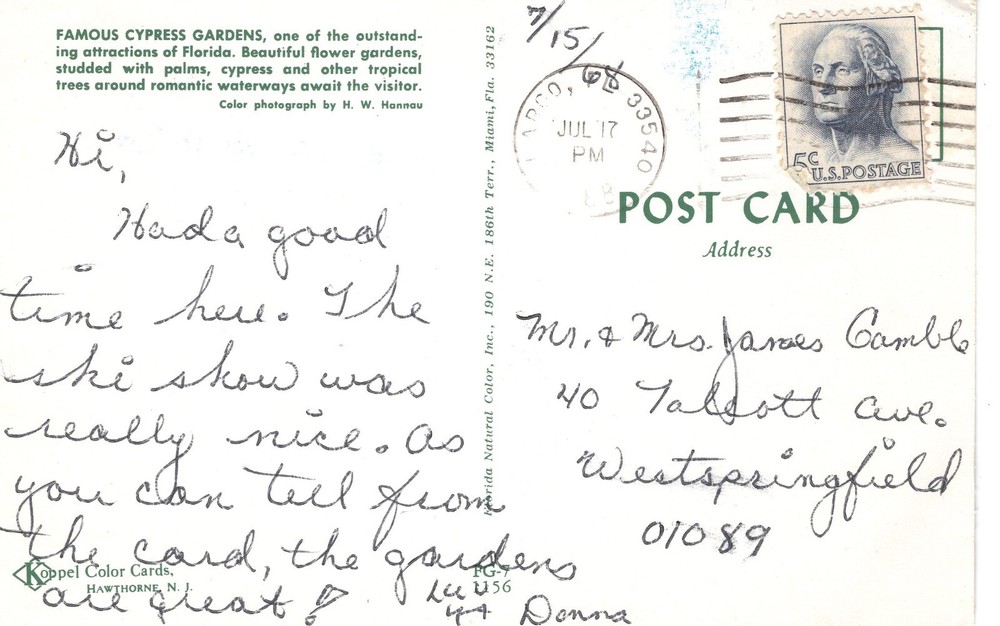 FAMOUS CYPRESS GARDENS, one of the outstand-
ing attractions of Florida. Beautiful flower gardens,
studded with palms, cypress and other tropical
trees around romantic waterways await the visitor.
Color photograph by H. W. Hannau
Hi,
Had a good
time here. The
ski show was
really nice. As
you can tell from
the card, the gardens
are great!
Donna
Koppel Color Cards,
HAWTHORNE, N. J.
FG-7
1156
Florida Natural Color, Inc., 190 N.E. 186th Terr., Miami, Fla. 33162
7/15/68
LARGO, 33540
JUL 17
PM
5c
U.S. POSTAGE
POST CARD
Address
Mr. & Mrs. James Gamble
40 Talcott Ave.
Westspringfield
01089